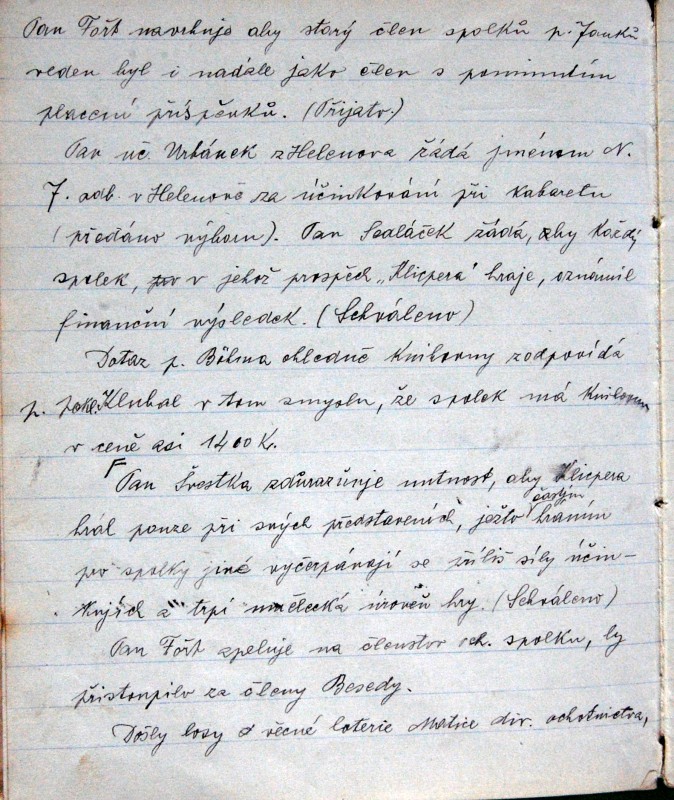 Pan Fořt navrhuje aby starý člen spolků p. Janků
veden byl i nadále jako člen s pominutím
placení příspěvků. (Přijato.)
Pan uč. Urbánek z Helenova žádá jménem N.
J. odb. v Helenově za účinkování při kabaretu
(předáno výboru). Pan Sealáček žádá, aby každý
spolek, v jehož prospěch „Klicpera" hraje, oznámil
finanční výsledek. (Schváleno)
Dotaz p. Böhma ohledně knihovny zodpovídá
p. pokl. Klubal v tom smyslu, že spolek má knihovnu
v ceně asi 1400 K.
Pan Švestka zdůrazňuje nutnost, aby Klicpera
hrál pouze při svých představeních, ježto častým hraním
pro spolky jiné vyčerpávají se příliš síly účin-
kujících a trpí umělecká úroveň hry. (Schváleno)
Pan Fořt apeluje na členstvo och. spolku, by
přistoupilo za členy Besedy.
Došly losy věcné loterie Matice div. ochotnictva,